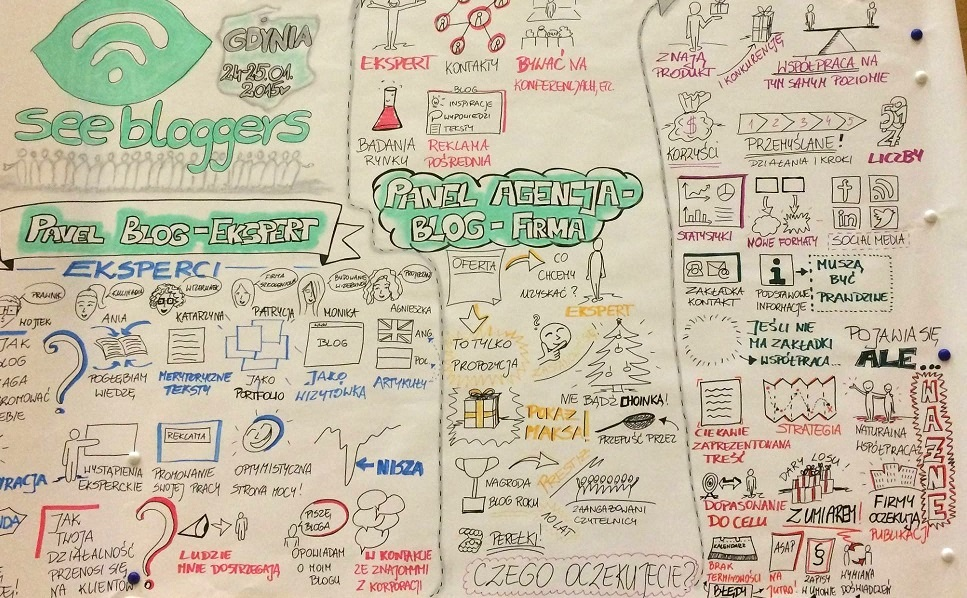 GDYNIA
24-25.01.
2015r
see bloggers
PANEL BLOG-EKSPERT
EKSPERCI
PRAWNIK
WOJTEK
KULINARIA
ANIA
WIZERUNEK
KATARZYNA
FIRMA
PATRYCJA
MONIKA
AGNIESZKA
JAK
BLOG
POGŁĘBIAM
WIEDZĘ
MERYTORYCZNE
TEKSTY
JAKO
PORTFOLIO
BLOG
JAKO
WIZYTÓWKA
ANG.
POL.
ARTYKUŁY
WYSTĄPIENIA
EKSPERCKIE
REKLAMA
PROMOWANIE
SWOJEJ PRACY
OPTYMISTYCZNA
STRONA MOCY!
NISZA
JAK
TWOJA
DZIAŁALNOŚĆ
PRZENOSI SIĘ
NA KLIENTÓW
?
LUDZIE
MNIE DOSTRZEGAJĄ
PISZĘ
BLOGA
OPOWIADAM
O MOIM
BLOGU
W KONTAKCIE
ZE ZNAJOMYMI
Z KORPORACJI
EKSPERT
KONTAKTY
BYWAĆ NA
KONFERENCJACH, ETC.
BADANIA
RYNKU
BLOG
INSPIRACJE
WYPOWIEDZI
TEKSTY
REKLAMA
POŚREDNIA
PANEL AGENCJA-
BLOG-FIRMA
OFERTA
CO
CHCEMY
UZYSKAĆ?
EKSPERT
TO TYLKO
PROPOZYCJA
NIE BĄDŹ CHOINKA!
POKAŻ
MAKSA!
PRZEPUŚĆ PRZEZ
NAGRODA
BLOG ROKU
ZAANGAŻOWANI
CZYTELNICY
10 LAT
PEREŁKI!
CZEGO OCZEKUJECIE?
ZNAJĄ
PRODUKT
I KONKURENCJĘ
WSPÓŁPRACA NA
TYM SAMYM POZIOMIE
KORZYŚCI
1 2 3 4 5
PRZEMYŚLANE!
DZIAŁANIA I KROKI
LICZBY
STATYSTYKI
NOWE FORMATY
SOCIAL MEDIA
ZAKŁADKA
KONTAKT
PODSTAWOWE
INFORMACJE
MUSZĄ
BYĆ
PRAWDZIWE
JEŚLI NIE
MA ZAKŁADKI
WSPÓŁPRACA...
POJAWIA SIĘ
ALE...
CIEKAWIE
ZAPREZENTOWANA
TREŚĆ
STRATEGIA
NATURALNA
WSPÓŁPRACA
WAŻNE
DOPASOWANIE
DO CELU
DARY LOSU
Z UMIAREM!
FIRMY
OCZEKUJĄ
PUBLIKACJI
KALENDARZ
BRAK
TERMINOWOŚCI
BŁĘDY
ASAP
NA
JUTRO!
§
ZAPISY
W UMOWIE
WYMIANA
DOŚWIADCZEŃ